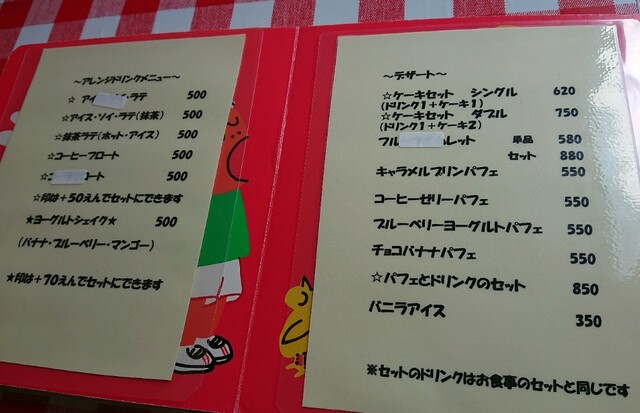 ～アレンジドリンクメニュー～
☆ アイ ・ラテ 500
☆アイス・ソイ・ラテ(抹茶) 500
☆抹茶ラテ(ホット・アイス) 500
☆コーヒーフロート 500
☆コ ート 500
☆印は＋50えんでセットにできます
★ヨーグルトシェイク★ 500
(バナナ・ブルーベリー・マンゴー)
★印は＋70えんでセットにできます
～デザート～
☆ケーキセット シングル 620
(ドリンク1＋ケーキ1)
☆ケーキセット ダブル 750
(ドリンク1＋ケーキ2)
フル レット 単品 580
セット 880
キャラメルプリンパフェ 550
コーヒーゼリーパフェ 550
ブルーベリーヨーグルトパフェ 550
チョコバナナパフェ 550
☆パフェとドリンクのセット 850
バニラアイス 350
※セットのドリンクはお食事のセットと同じです